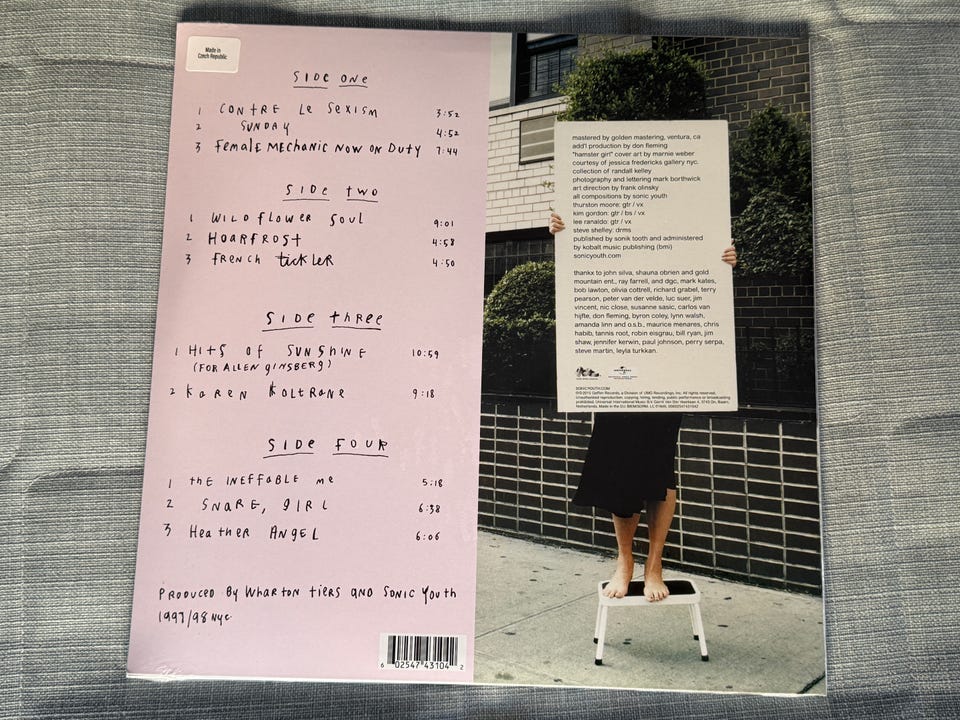 Made in
Czech Republic
SIDE ONE
1 CONTRE LE SEXISM 3:52
2 SUNDAY 4:52
3 FEMALE MECHANIC NOW ON DUTY 7:44
SIDE TWO
1 WILDFLOWER SOUL 9:01
2 HOARFROST 4:58
3 FRENCH TICKLER 4:50
SIDE THREE
1 HITS OF SUNSHINE 10:59
(FOR ALLEN GINSBERG)
2 KAREN KOLTRANE 9:18
SIDE FOUR
1 THE INEFFABLE ME 5:18
2 SNARE, GIRL 6:38
3 HEATHER ANGEL 6:06
PRODUCED BY WHARTON TIERS AND SONIC YOUTH
1997/98 NYC
6 02547 43104 2
mastered by golden mastering, ventura, ca
add'l production by don fleming
"hamster girl" cover art by marnie weber
courtesy of jessica fredericks gallery nyc.
collection of randall kelley
photography and lettering mark borthwick
art direction by frank olinsky
all compositions by sonic youth
thurston moore: gtr / vx
kim gordon: gtr / bs / vx
lee ranaldo: gtr / vx
steve shelley: drms
published by sonik tooth and administered
by kobalt music publishing (bmi)
sonicyouth.com
thankx to john silva, shauna obrien and gold
mountain ent., ray farrell, and dgc, mark kates,
bob lawton, olivia cottrell, richard grabel, terry
pearson, peter van der velde, luc suer, jim
vincent, nic close, susanne sasic, carlos van
hijfte, don fleming, byron coley, lynn walsh,
amanda linn and o.s.b., maurice menares, chris
habib, tannis root, robin eisgrau, bill ryan, jim
shaw, jennifer kerwin, paul johnson, perry serpa,
steve martin, leyla turkkan.
SONICYOUTH.COM
Geffen Records, a Division of UMG Recordings, Inc. All rights reserved.
Unauthorized reproduction, copying, hiring, lending, public performance or broadcasting
prohibited. Universal International Music B.V.
Netherlands. Made in the EU.